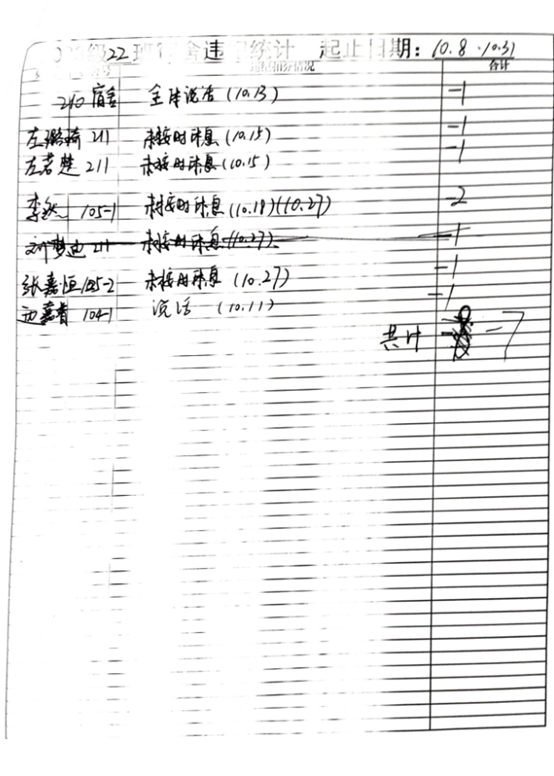 级22班 舍违 统计 起止日期：10.8-10.31
情况 合计
210宿舍 全体说话(10.13) -1
左璐琦 211 未按时休息(10.15) -1
左若楚 211 未按时休息(10.15) -1
李 105-1 未按时休息(10.18)(10.27) -2
刘梦迪 211 未按时休息(10.27) -1
张嘉恒 105-2 未按时休息(10.27) -1
边嘉 104-1 说话 (10.11) -1
共计 -7